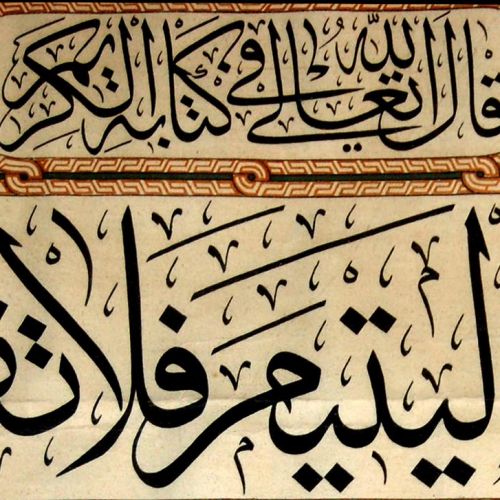 قال الله تعالى في كتابه الكريم
اليتيم فلا